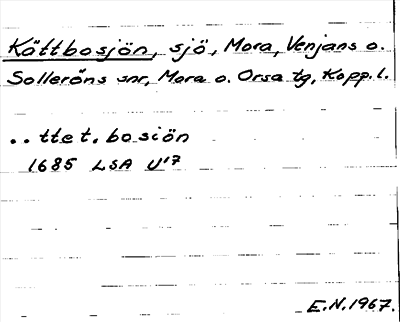 Kättbosjön, sjö, Mora, Venjans o.
Solleröns snr, Mora o. Orsa tg, Kopp. l.
.. ttet. bosiön
1685 LSA U17
E.N. 1967.